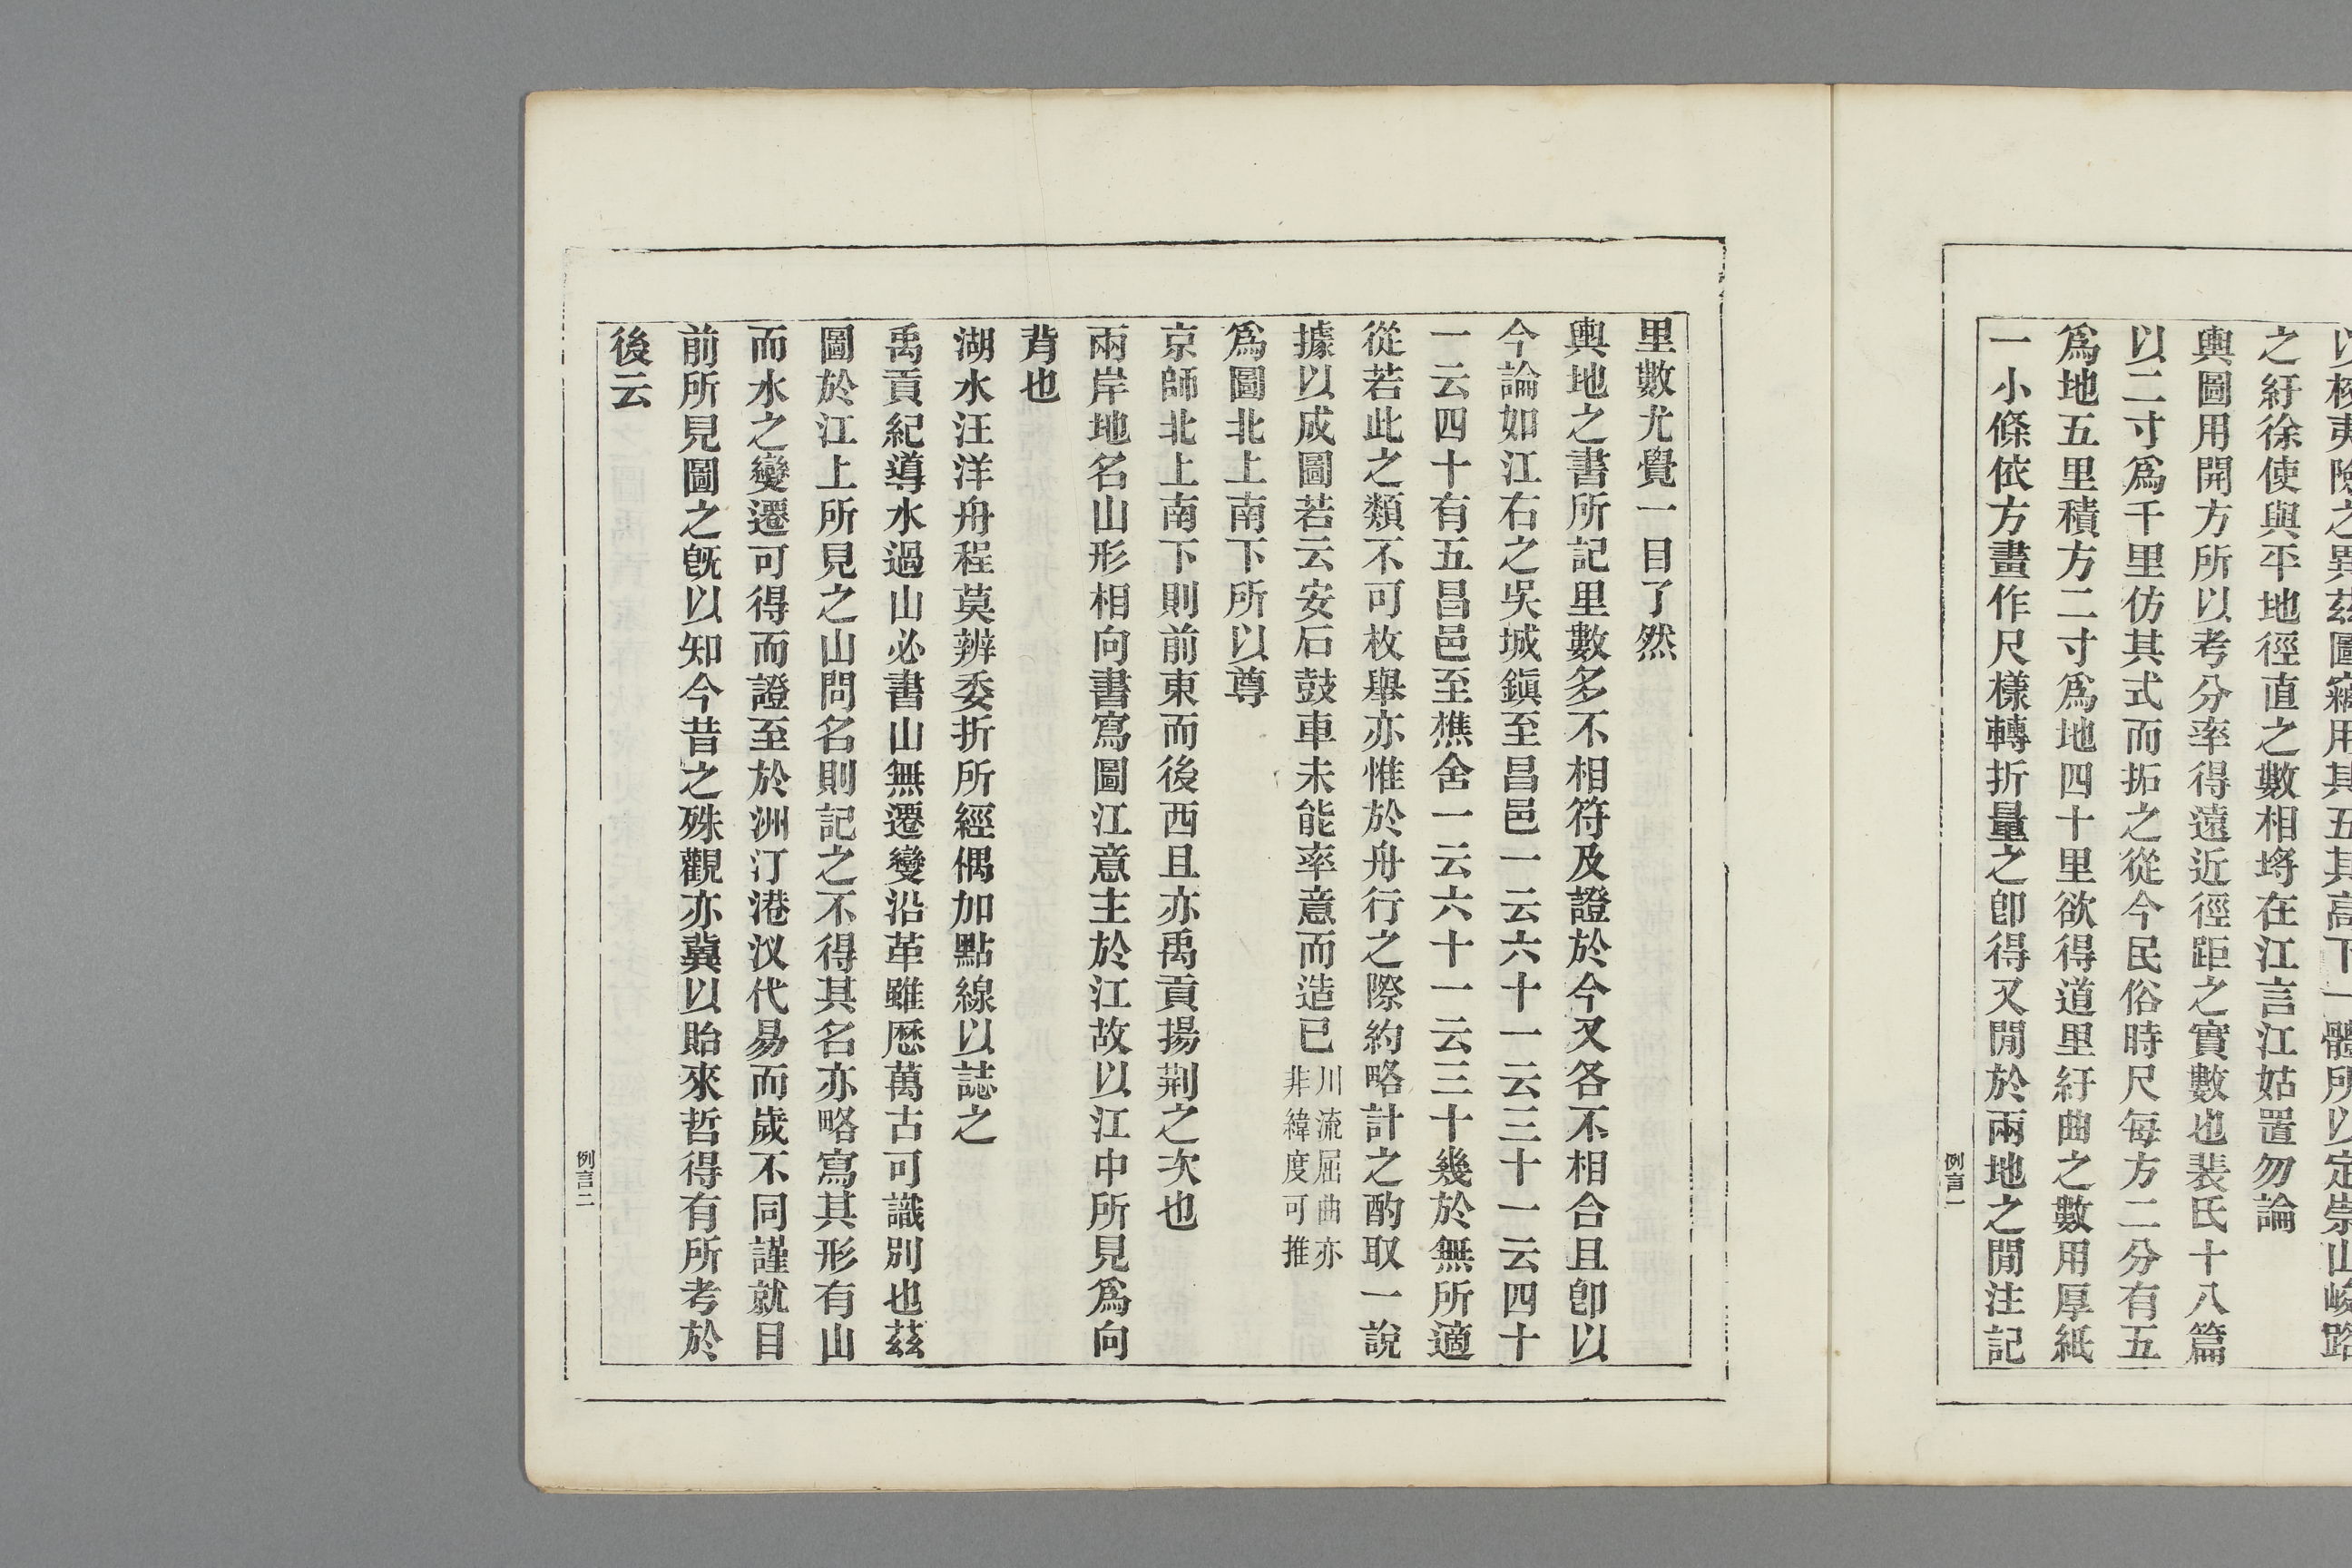 以核夷險之異茲圖竊用其五其高下一體所以定崇山峻路
之紆徐使與平地徑直之數相埒在江言江姑置勿論
輿圖用開方所以考分率得遠近徑距之實數也裴氏十八篇
以二寸爲千里仿其式而拓之從今民俗時尺每方二分有五
爲地五里積方二寸爲地四十里欲得道里紆曲之數用厚紙
一小條依方畫作尺樣轉折量之卽得又閒於兩地之閒注記
例言一
里數尤覺一目了然
輿地之書所記里數多不相符及證於今又各不相合且卽以
今論如江右之吳城鎭至昌邑一云六十一云三十一云四十
一云四十有五昌邑至樵舍一云六十一云三十幾於無所適
從若此之類不可枚舉亦惟於舟行之際約略計之酌取一說
據以成圖若云安石鼓車未能率意而造已川流屈曲亦
非緯度可推
爲圖北上南下所以尊
京師北上南下則前東而後西且亦禹貢揚荆之次也
兩岸地名山形相向書寫圖江意主於江故以江中所見爲向
背也
湖水汪洋舟程莫辨委折所經偶加點線以誌之
禹貢紀導水過山必書山無遷變沿革雖歷萬古可識別也茲
圖於江上所見之山問名則記之不得其名亦略寫其形有山
而水之變遷可得而證至於洲汀港汊代易而歲不同謹就目
前所見圖之旣以知今昔之殊觀亦冀以貽來哲得有所考於
後云
例言二